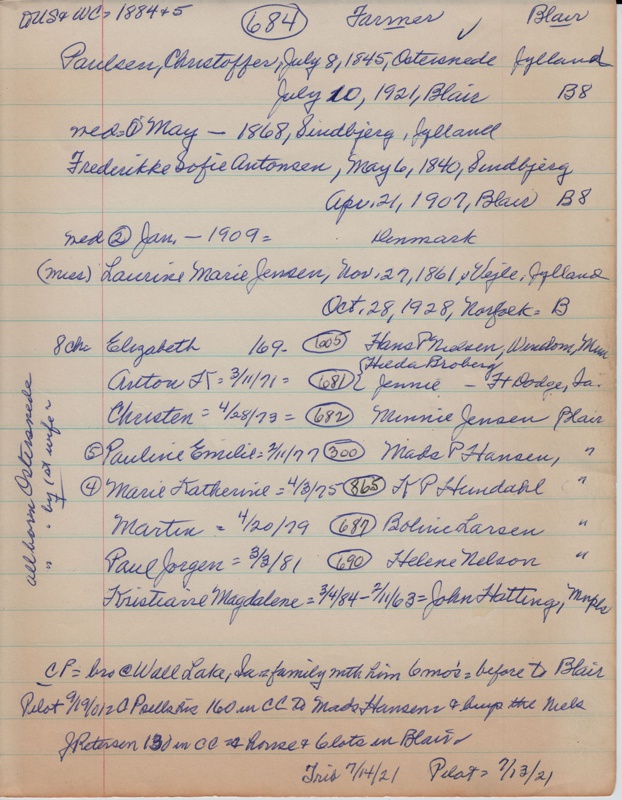 to US & WC = 1884 & 5 684 Farmer ✓ Blair
Paulsen, Christoffer, July 8, 1845, Ostersnede Jylland
July 10, 1921, Blair B8
med = ① May — 1868, Sindbjerg, Jylland
Frederikke Sofie Antonsen, May 6, 1840, Sindbjerg
Apr. 21, 1907, Blair B8
med ② Jan. — 1909 = Denmark
(Mrs) Laurine Marie Jensen, Nov. 27, 1861, Vejle, Jylland
Oct. 28, 1928, Norfolk = B
8 ch: Elizabeth 169- 605 Hans P Nielsen, Windom, Minn
Anton K = 3/11/71 = 681 { Hilda Broberg
Jennie — Ft Dodge, Ia.
Christen = 4/28/73 = 682 Minnie Jensen Blair
⑤ Pauline Emilie = 2/11/77 300 Mads P Hansen, "
④ Marie Katherine = 4/3/75 865 K P Hundahl "
Martin = 4/20/79 687 Boline Larsen "
Paul Jorgen = 3/3/81 690 Helene Nelson "
Kristiane Magdalene = 3/4/84 - 2/11/63 = John Hatting, Mnpls
all born Ostersnede
" = by 1st wife =
CP = bro @ Wall Lake, Ia = family with him 6 mo's = before to Blair
Pilot 9/19/01 = CP sells his 160 in CC to Mads Hansen & buys the Niels
J Petersen 130 in CC = & house & 6 lots in Blair
Trib 7/14/21 Pilot = 7/13/21